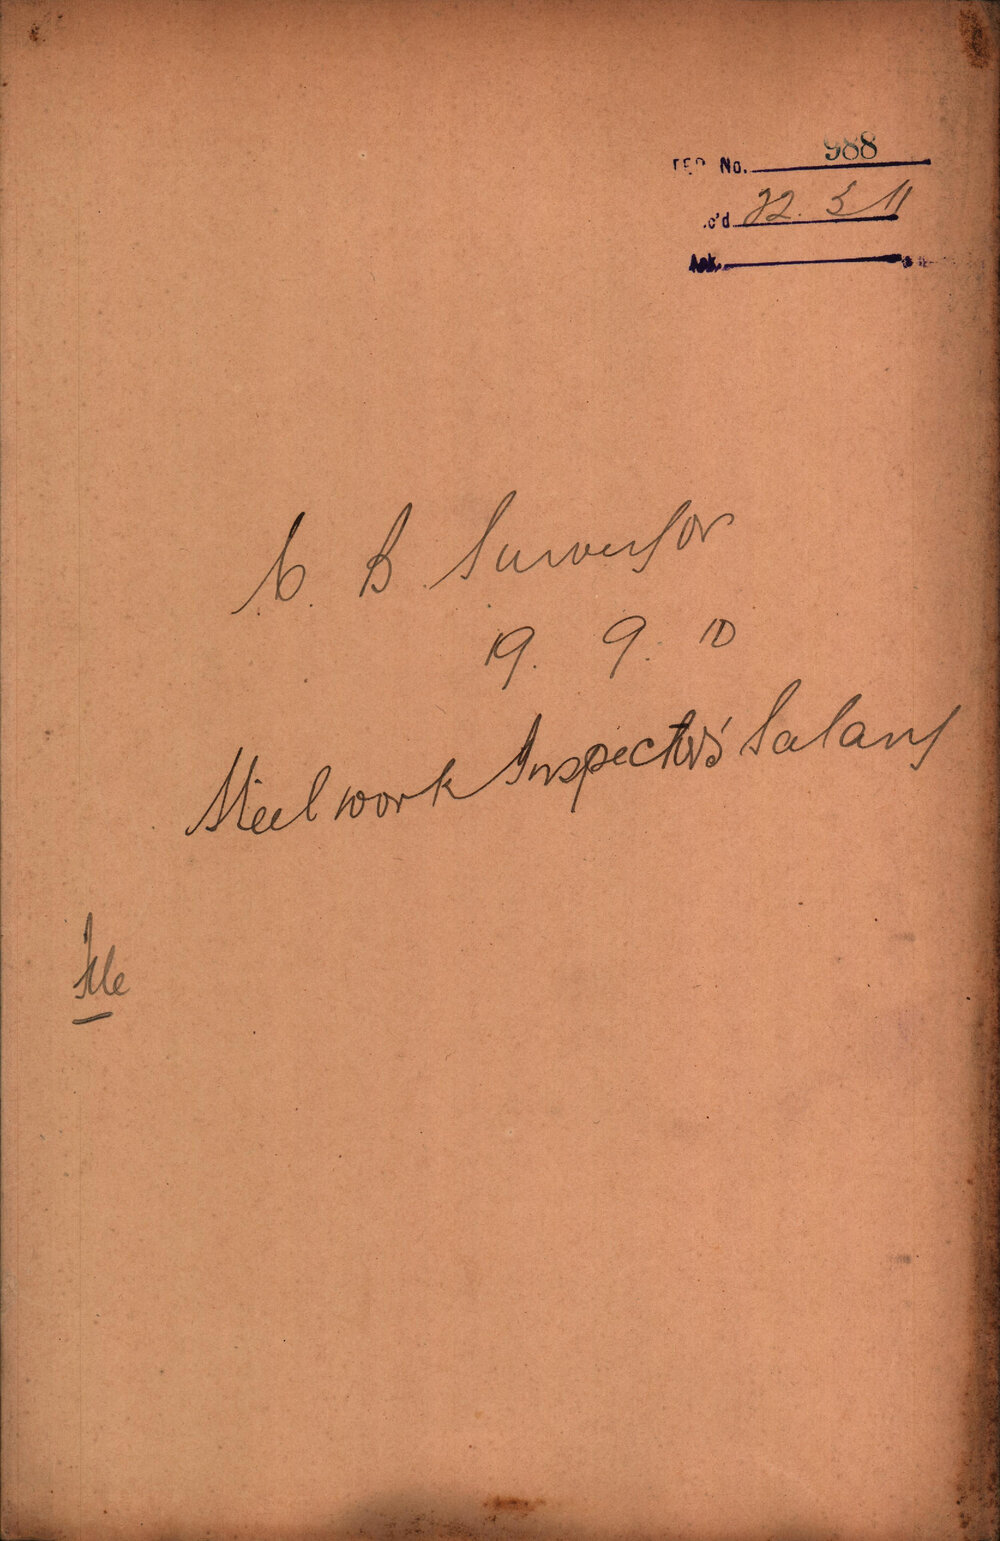 No. 988
c'd 22. 3 11
Ack.
C. B. Surveyor
19. 9. 10
Steelwork Inspectors' Salary
File